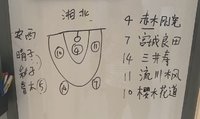 湘北
安西
晴子
彩子
⑩
⑪
⑭
④
⑦
4 赤木剛憲
7 宮城良田
14 三井寿
11 流川楓
10 櫻木花道